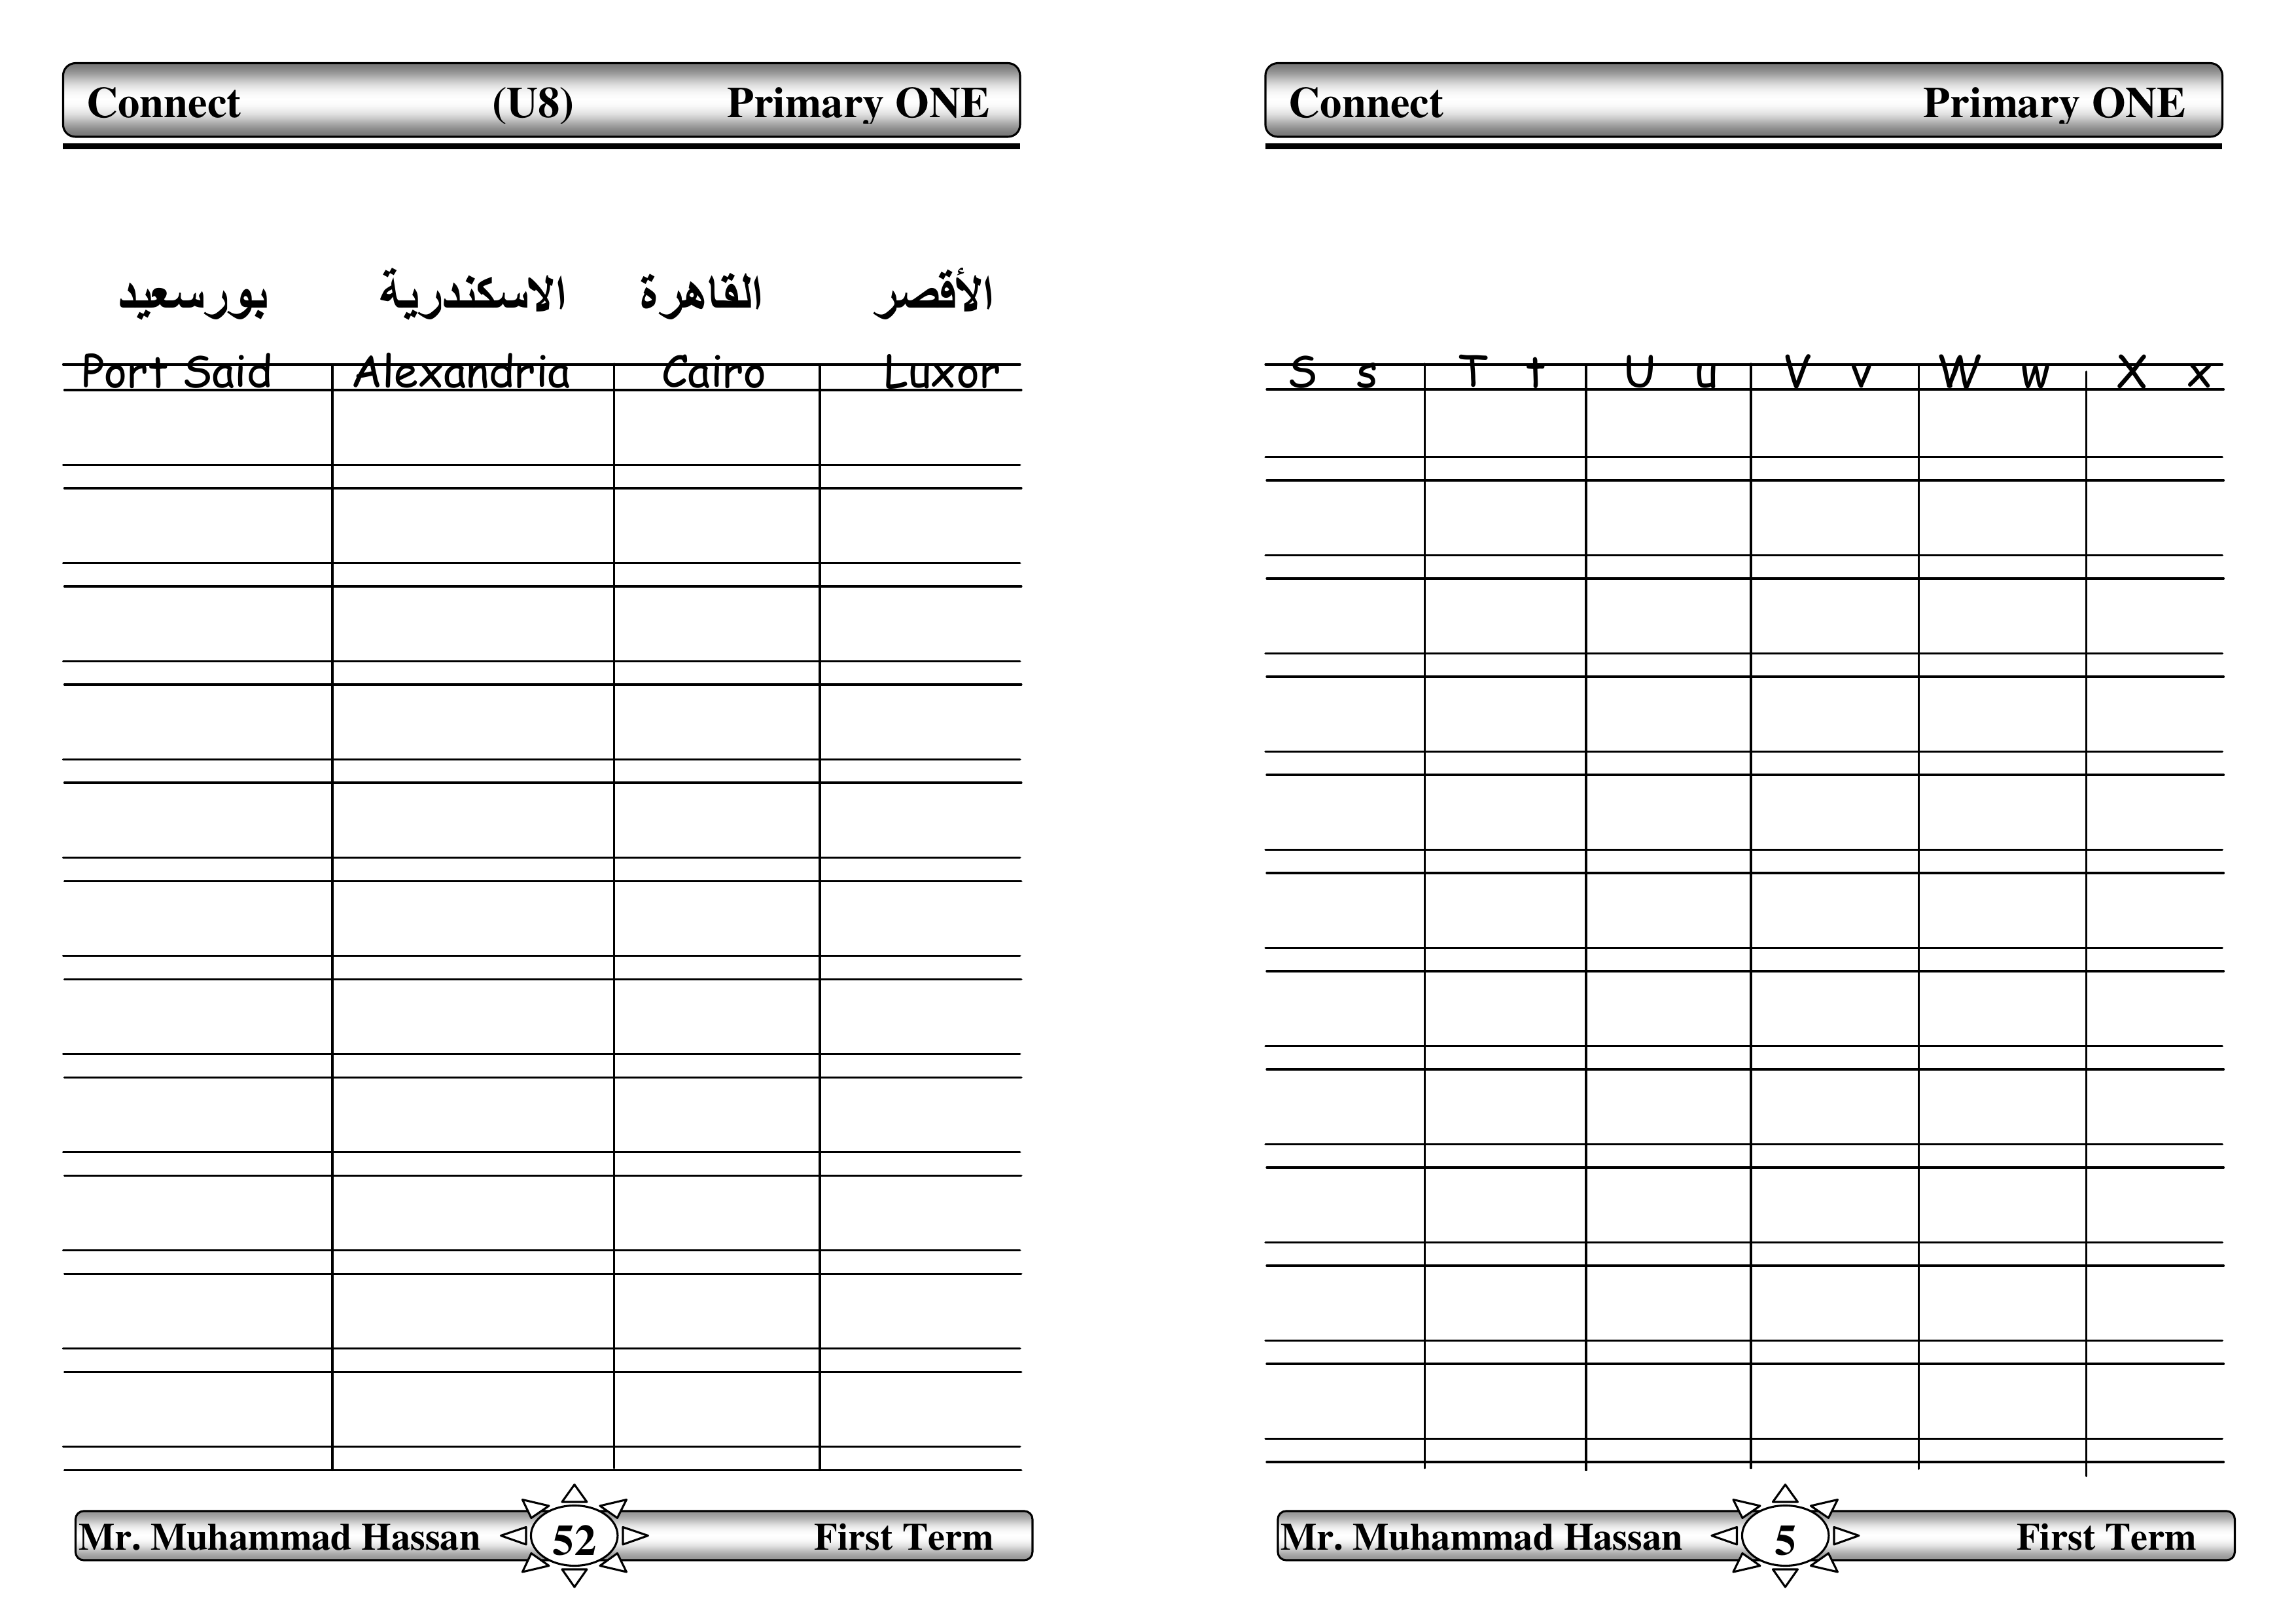 Connect (U8) Primary ONE
بورسعيد الاسكندرية القاهرة الأقصر
Port Said Alexandria Cairo Luxor
Mr. Muhammad Hassan 52 First Term
Connect Primary ONE
S s T t U u V v W w X x
Mr. Muhammad Hassan 5 First Term